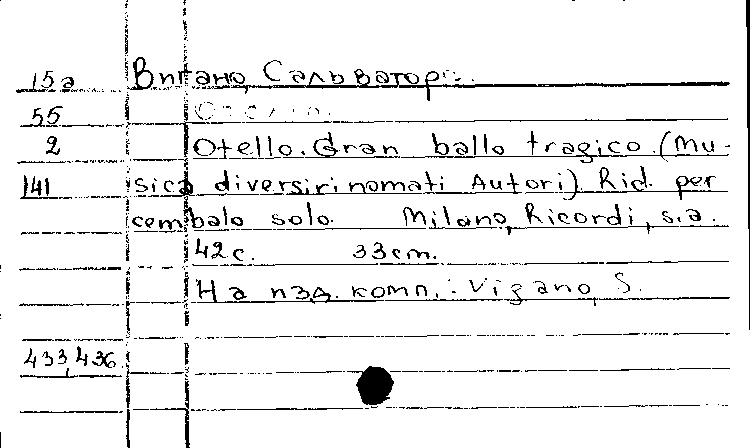 15а Вигано, Сальваторе.
55
2 Otello. Gran ballo tragico. (Mu-
141 sica diversi rinomati Autori). Rid. per
cembalo solo. Milano, Ricordi, s.a.
42 c. 33 cm.
На изд. комп.: Vigano, S.
433,436.